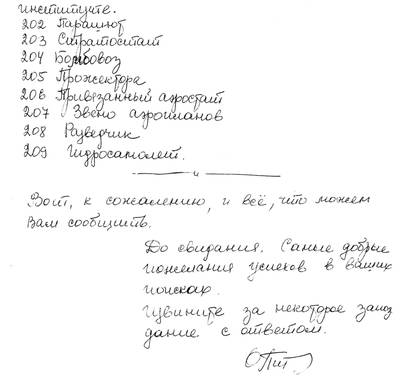 институте.
202 Парашют
203 Стратостат
204 Бомбовоз
205 Прожектора
206 Привязанный аэростат
207 Звено аэропланов
208 Разведчик
209 Гидросамолет.
Вот, к сожалению, и всё, что можем
Вам сообщить.
До свидания. Самые добрые
пожелания успехов в ваших
поисках.
Извините за некоторое запоз
дание с ответом.